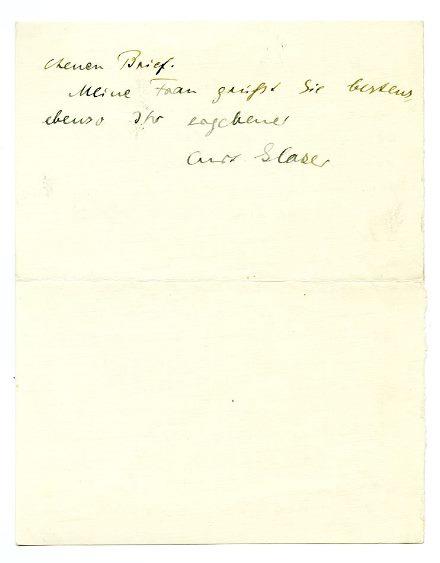 chenen Brief.
Meine Frau grüßt Sie bestens,
ebenso Ihr ergebener
Curt Glaser